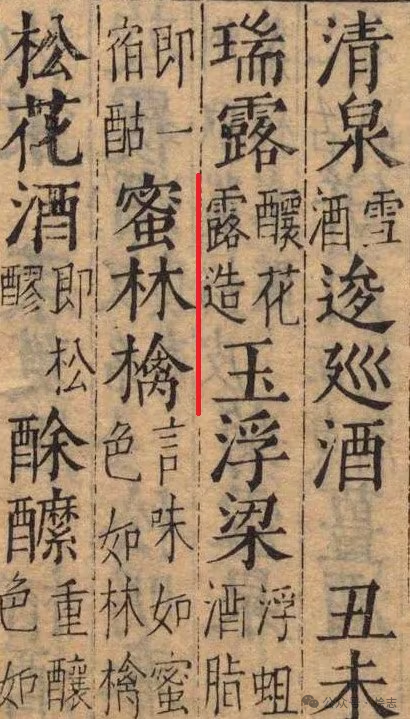 清泉雪酒逡廵酒 丑未
瑞露釀花露造玉浮梁浮蛆酒脂
即一宿酤蜜林檎言味如蜜色如林檎
松花酒即松醪酴醾重釀色如
公众号